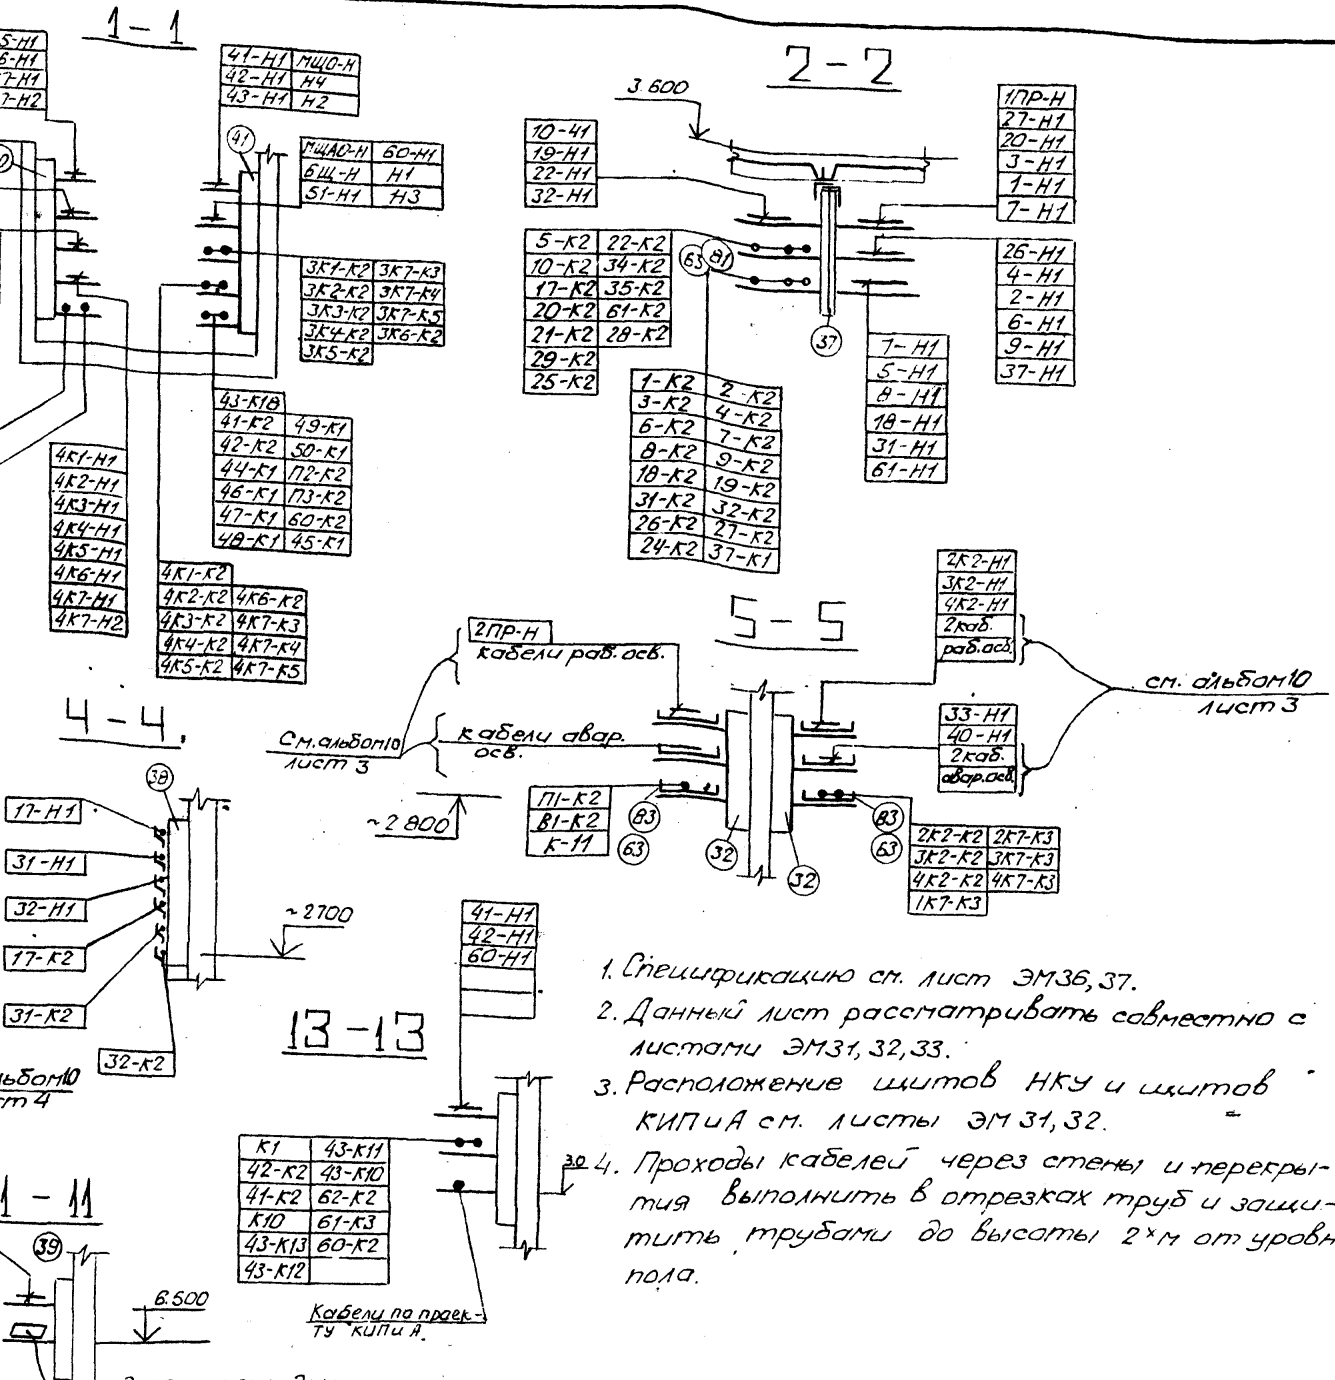 1-1
5-Н1
6-Н1
7-Н1
7-Н2
41-Н1 МЩО-Н
42-Н1 Н4
43-Н1 Н2
41
МЩАО-Н 60-Н1
6Щ-Н Н1
51-Н1 Н3
3К1-К2 3К7-К3
3К2-К2 3К7-К4
3К3-К2 3К7-К5
3К4-К2 3К6-К2
3К5-К2
43-К18
41-К2 49-К1
42-К2 50-К1
44-К1 П2-К2
46-К1 П3-К2
47-К1 60-К2
48-К1 45-К1
4К1-Н1
4К2-Н1
4К3-Н1
4К4-Н1
4К5-Н1
4К6-Н1
4К7-Н1
4К7-Н2
4К1-К2
4К2-К2 4К6-К2
4К3-К2 4К7-К3
4К4-К2 4К7-К4
4К5-К2 4К7-К5
2-2
3.600
10-Ч1
19-Н1
22-Н1
32-Н1
5-К2 22-К2
10-К2 34-К2
17-К2 35-К2
20-К2 61-К2
21-К2 28-К2
29-К2
25-К2
63 81
37
1ПР-Н
27-Н1
20-Н1
3-Н1
1-Н1
7-Н1
26-Н1
4-Н1
2-Н1
6-Н1
9-Н1
37-Н1
7-Н1
5-Н1
8-Н1
18-Н1
31-Н1
61-Н1
1-К2 2-К2
3-К2 4-К2
6-К2 7-К2
8-К2 9-К2
18-К2 19-К2
31-К2 32-К2
26-К2 27-К2
24-К2 37-К1
5-5
2ПР-Н
кабели раб. осв.
кабели авар.
осв.
См. альбом 10
лист 3
~2800
П1-К2
В1-К2
К-11
83
63
32
32
83
63
2К2-Н1
3К2-Н1
4К2-Н1
2каб.
раб.осв.
33-Н1
40-Н1
2каб.
авар.осв.
см. альбом 10
лист 3
2К2-К2 2К7-К3
3К2-К2 3К7-К3
4К2-К2 4К7-К3
1К7-К3
4-4
38
17-Н1
31-Н1
32-Н1
17-К2
31-К2
32-К2
~2700
льбом 10
ст 4
13-13
41-Н1
42-Н1
60-Н1
К1 43-К11
42-К2 43-К10
41-К2 62-К2
К10 61-К3
43-К13 60-К2
43-К12
3.0
Кабели по проек-
ту КИПиА.
1-11
39
6.500
1. Спецификацию см. лист ЭМ36,37.
2. Данный лист рассматривать совместно с
листами ЭМ31,32,33.
3. Расположение щитов НКУ и щитов
КИПиА см. листы ЭМ 31,32.
4. Проходы кабелей через стены и перекры-
тия выполнить в отрезках труб и защи-
тить трубами до высоты 2ˣм от уровн
пола.